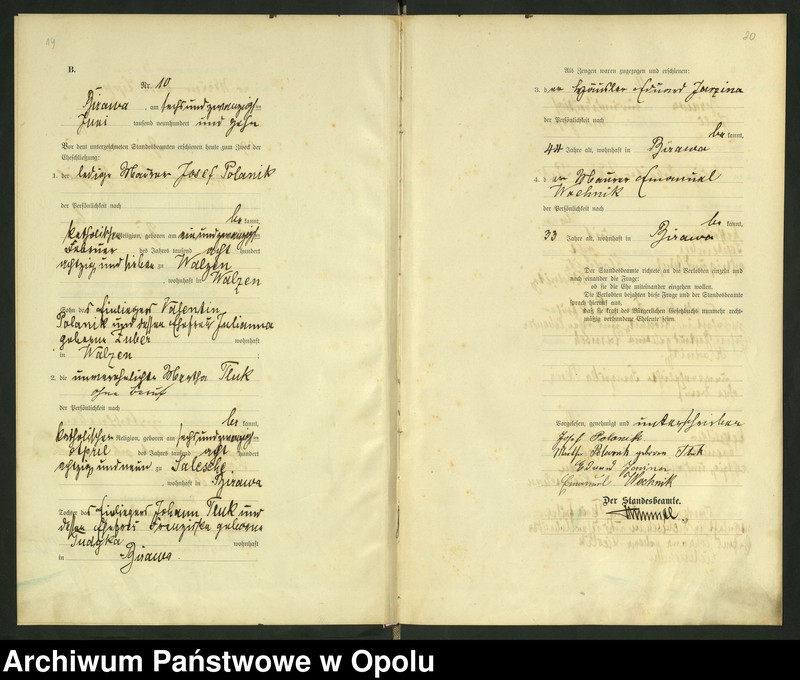 19
B.
Nr. 10
Birawa, am sechsundzwanzigsten
Juni tausend neunhundert und zehn
Vor dem unterzeichneten Standesbeamten erschienen heute zum Zweck der
Eheschließung:
1. der ledige Maurer Josef Polanik
der Persönlichkeit nach
be kannt,
katholischer Religion, geboren am einundzwanzigsten
Februar des Jahres tausend acht hundert
achtzig und sieben zu Walzen
, wohnhaft in Walzen
Sohn des Einliegers Valentin
Polanik und dessen Ehefrau Julianna
geborene Zuber wohnhaft
in Walzen :
2. die unverehelichte Martha Tluk
ohne Beruf
der Persönlichkeit nach
be kannt,
katholischer Religion, geboren am sechsundzwanzigsten
April des Jahres tausend acht hundert
achtzig und neun zu Salesche
, wohnhaft in Birawa
Tochter des Einliegers Johann Tluk und
dessen Ehefrau Franziska geborene
wohnhaft
in Birawa
20
Als Zeugen waren zugezogen und erschienen:
3. der Häusler Eduard
der Persönlichkeit nach
be kannt,
44 Jahre alt, wohnhaft in Birawa
4. der Maurer Emanuel
Wochnik
der Persönlichkeit nach
be kannt,
33 Jahre alt, wohnhaft in Birawa
Der Standesbeamte richtete an die Verlobten einzeln und
nach einander die Frage:
ob sie die Ehe miteinander eingehen wollen.
Die Verlobten bejahten diese Frage und der Standesbeamte
sprach hierauf aus,
daß sie kraft des Bürgerlichen Gesetzbuchs nunmehr recht-
mäßig verbundene Eheleute seien.
Vorgelesen, genehmigt und unterschrieben
Josef Polanik
Polanik geborene Tluk
Eduard
Emanuel Wochnik
Der Standesbeamte.
Archiwum Państwowe w Opolu